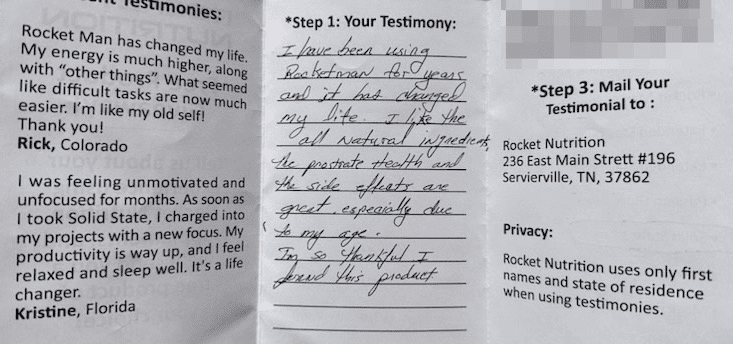 nt Testimonies:
Rocket Man has changed my life.
My energy is much higher, along
with “other things”. What seemed
like difficult tasks are now much
easier. I’m like my old self!
Thank you!
Rick, Colorado
I was feeling unmotivated and
unfocused for months. As soon as
I took Solid State, I charged into
my projects with a new focus. My
productivity is way up, and I feel
relaxed and sleep well. It's a life
changer.
Kristine, Florida
*Step 1: Your Testimony:
I have been using
Rocketman for years
and it has changed
my life. I like the
all Natural ingredients,
the prostrate Health and
the side effects are
great, especially due
to my age.
I'm so thankful I
found this product
*Step 3: Mail Your
Testimonial to :
Rocket Nutrition
236 East Main Strett #196
Servierville, TN, 37862
Privacy:
Rocket Nutrition uses only first
names and state of residence
when using testimonies.